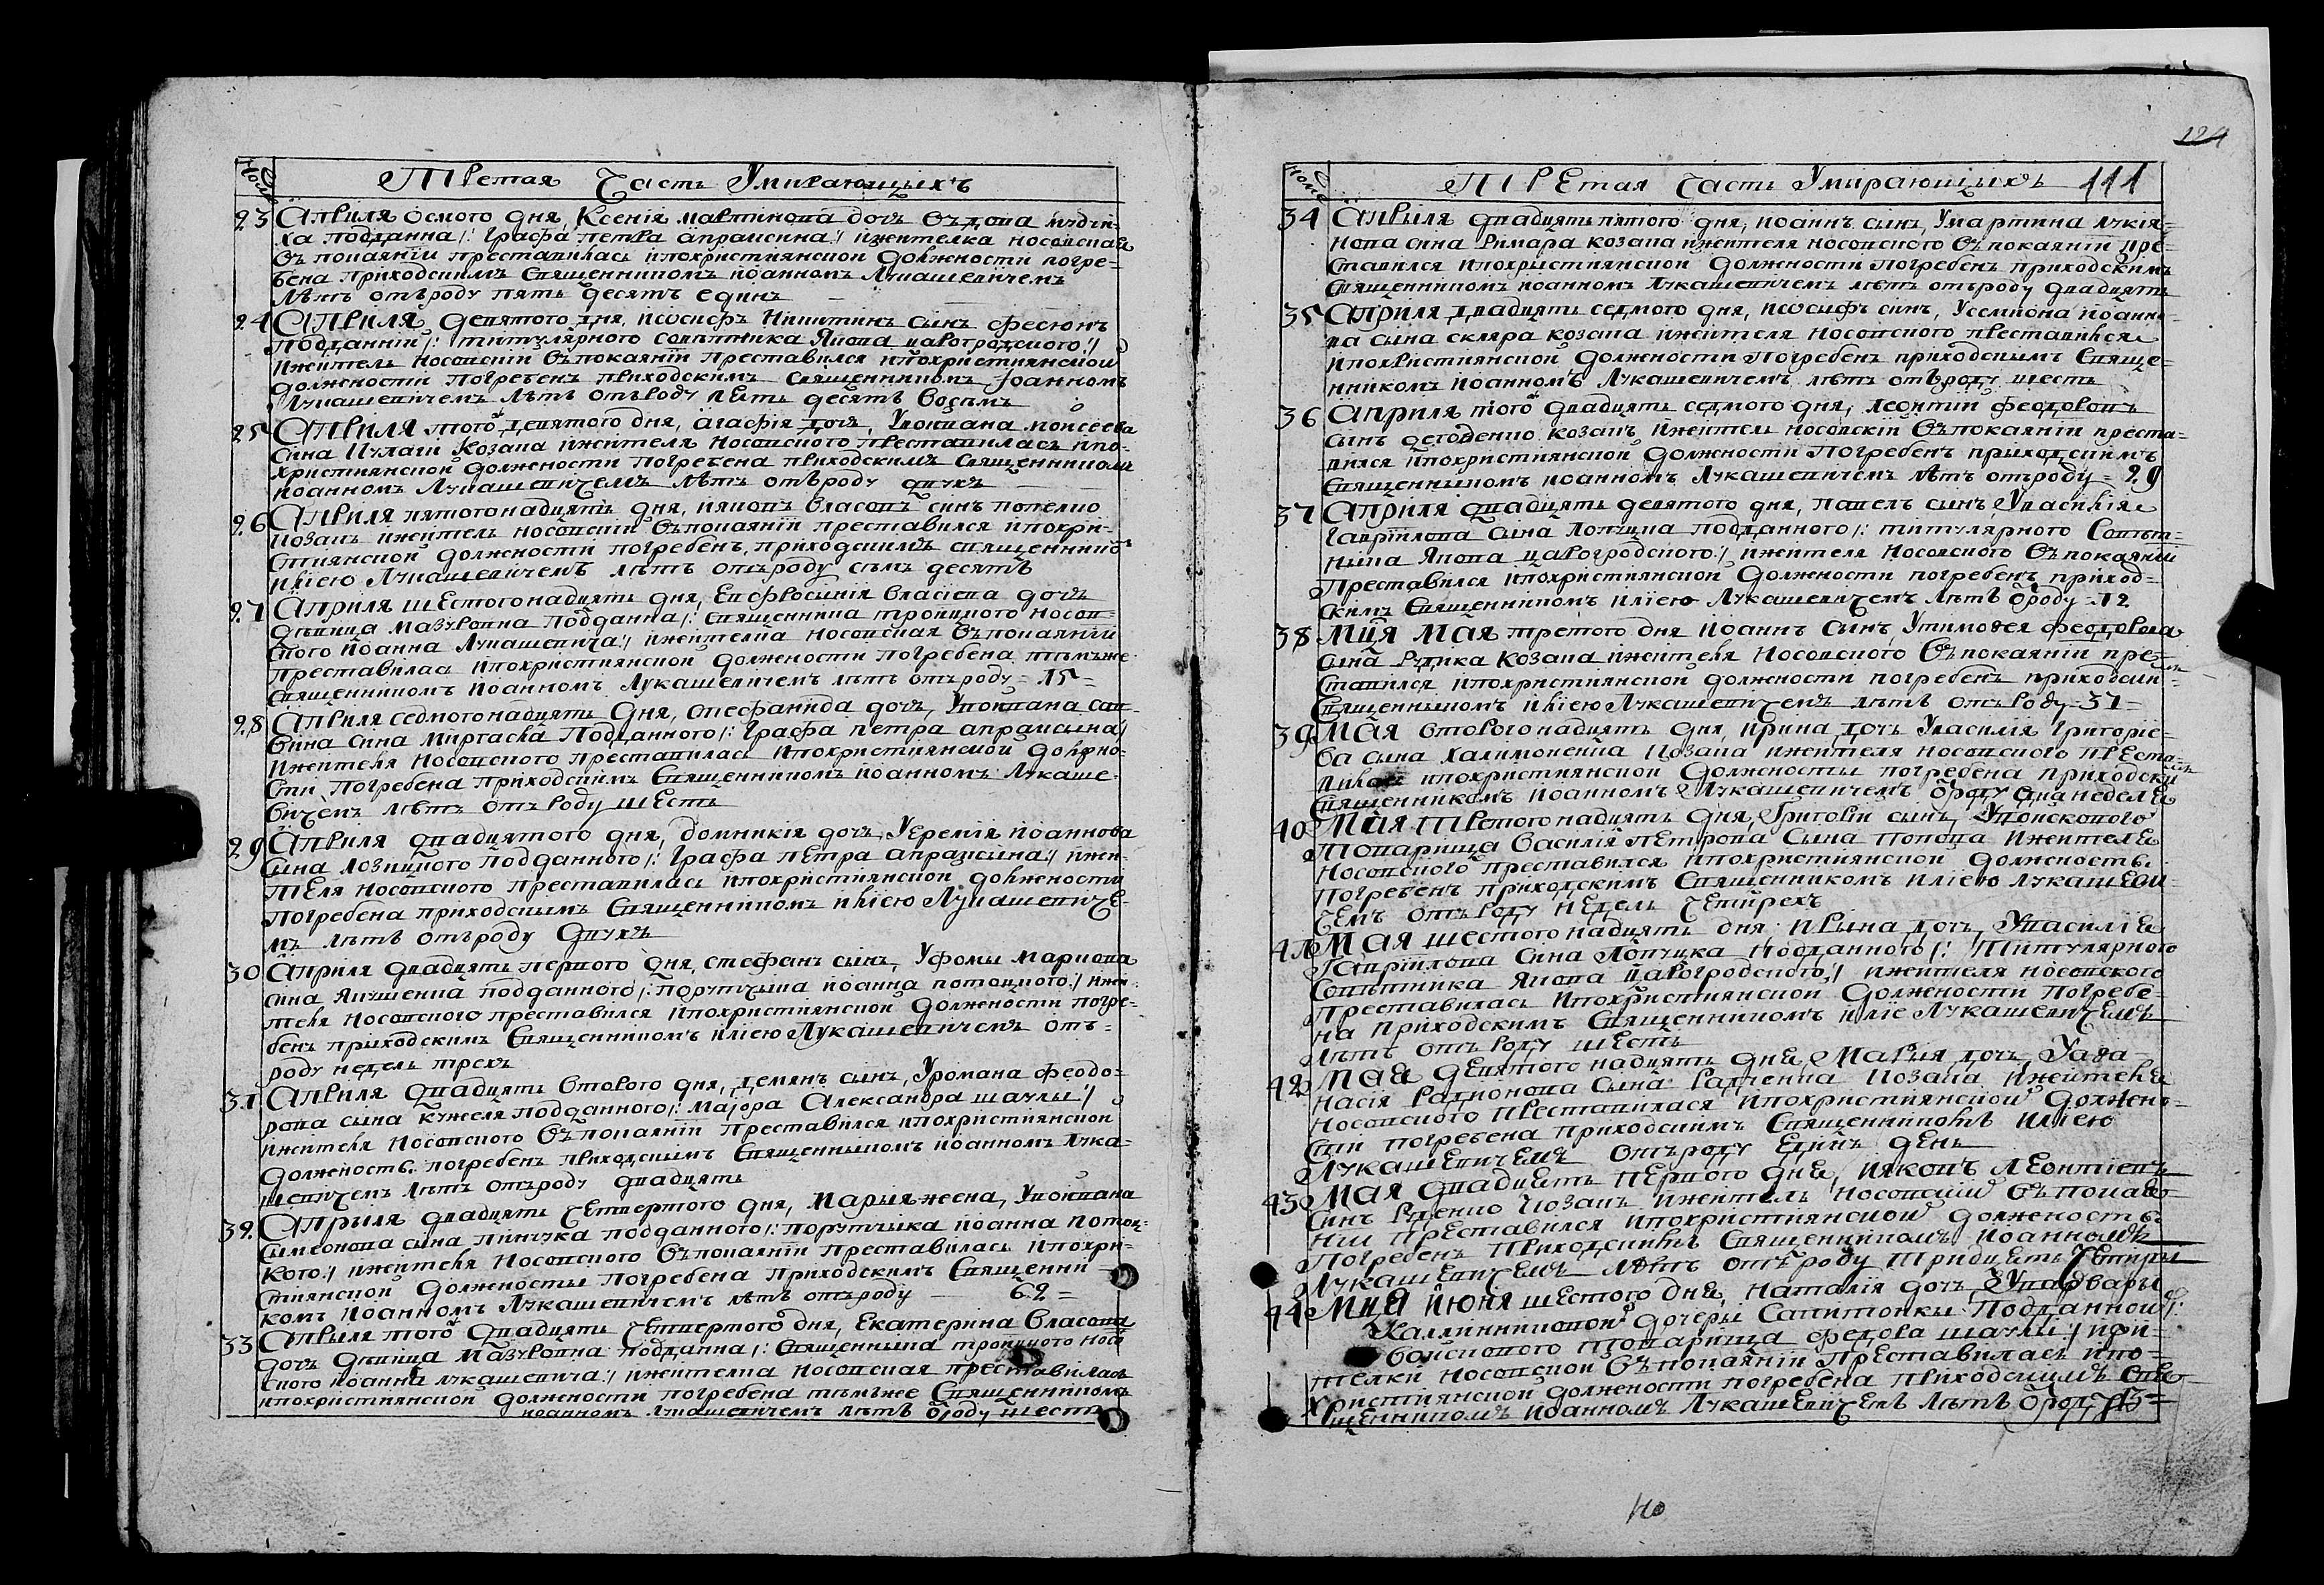 Третая Часть Умирающихъ
23 Априля осмого дня, Ксенія мартинова дочъ вѣдова
ха подданна /: Графа петра апраксина :/ ижителка носовская
въ покаяніи преставилась ипохристиянской должности погре-
бена приходскимъ священникомъ иоанномъ Лукашевичемъ
лѣтъ отъ роду пять десятъ единъ
24 Априля девятого дня, иосифъ Никитинъ синъ фесюнъ
подданній /: титулярного совѣтника Якова царогродского :/
ижитель носовскій въ покаяніи преставился ипохристиянской
должности погребенъ приходскимъ священникомъ иоанномъ
Лукашевичемъ лѣтъ отъ роду пять десятъ восемъ
25 Априля того девятого дня, агафія дочъ, Уковпана моисеева
сина козака ижителя носовского преставилась ипо-
християнской должности погребена приходскимъ священникомъ
иоанномъ Лукашевичемъ лѣтъ отъ роду двухъ
26 Априля пятогонадцять дня, иаковъ власовъ синъ
козакъ ижитель носовскій въ покаяніи преставился ипохри-
стиянской должности погребенъ приходскимъ священнико
иліею Лукашевичемъ лѣтъ отъ роду семъ десятъ
27 Априля шестогонадцять дня, Евфросинія власіева дочъ
дѣвица мазуровна подданна /: священника троицкого носов-
ского иоанна Лукашевича :/ ижителка носовская въ покаяніи
преставилась ипохристиянской должности погребена тѣмъже
священникомъ иоанномъ Лукашевичемъ лѣтъ отъ роду = 15 =
28 Априля седмогонадцять дня, стефанида дочъ, Уковпана сав-
вина сина подданного /: Графа петра апраксина :/
ижителя носовского преставилась ипохристиянской должно-
сти погребена приходскимъ священникомъ иоанномъ Лукаше-
вичемъ лѣтъ отъ роду шесть
29 Априля двадцятого дня, домникія дочъ, Уеремія иоаннова
сина Лозицкого подданного /: Графа петра апраксина :/ ижи-
теля носовского преставилась ипохристиянской должности
погребена приходскимъ священникомъ иліею Лукашевиче-
мъ лѣтъ отъ роду двухъ
30 Априля двадцять первого дня, стефанъ синъ, Уфомы маркова
сина Якушенка подданного /: порутчика иоанна потоцкого :/ ижи-
теля носовского преставился ипохристиянской должности погре-
бенъ приходскимъ священникомъ иліею Лукашевичемъ отъ =
роду недель трехъ
31 Априля двадцять второго дня, демянъ синъ, Уромана феодо-
рова сына кужеля подданного /: маіора Александра шаулы :/
ижителя носовского въ покаяніи преставился ипохристиянской
должность погребенъ приходскимъ священникомъ иоанномъ лука-
шевичемъ лѣтъ отъ роду двадцять
32 Априля двадцять четвертого дня, мария жена, Уковпана
симеонова сына пинчука подданного /: порутчика иоанна потоц-
кого :/ ижителя носовского въ покаяніи преставилась ипохри-
стиянской должносты погребена приходскимъ священни-
комъ иоанномъ Лукашевичемъ лѣтъ отъ роду 62 =
33 Априля того двадцять четвертого дня, Екатерина власова
дочъ дѣвица мазуровна подданна /: священника троицкого носо
ского иоанна лукашевича :/ ижителка носовская преставилась
ипохристиянской должности погребена тѣмъже священникомъ
иоанномъ лукашевичемъ лѣтъ ѿроду шесть
124
Третая Часть Умирающихъ 111
34 Априля двадцять пятого дня, иоаннъ синъ, Умартина лукія-
нова сина Римара козака ижителя носовского въ покаяніи пре-
ставился ипохристиянской должности погребенъ приходскимъ
священникомъ иоанномъ Лукашевичемъ лѣтъ отъ роду двадцять
35 Априля двадцять седмого дня, иосифъ синъ, Усеміона иоанно-
ва сина скляра козака ижителя носовского преставился
ипохристиянской должности погребенъ приходскимъ свяще-
нникомъ иоанномъ Лукашевичемъ лѣтъ отъ роду шесть
36 Априля того двадцять седмого дня, леонтій феодоровъ
сынъ козакъ ижитель носовскій въ покаяніи преста-
вился ипохристиянской должности погребенъ приходскимъ
священникомъ иоанномъ Лукашевичемъ лѣтъ отъ роду = 29
37 Априля двадцять девятого дня, павелъ синъ, Увасилія
гавріилова сина Лопушка подданного /: титулярного совѣт-
ника Якова царогродского :/ ижителя носовского въ покаяніи
преставился ипохристиянской должности погребенъ приход-
скимъ священникомъ иліею Лукашевичемъ лѣтъ ѿроду = 12
38 Мця мая третого дня иоаннъ синъ, Утимофея феодорова
сина Рудика козака ижителя носовского въ покаяніи пре-
ставился ипохристиянской должности погребенъ приходски-
священникомъ иліею Лукашевичемъ лѣтъ отъ роду = 37 =
39 мая второгонадцять дня, ирина дочъ Увасилія григоріе-
ва сына халимоненка козака ижителя носовского преста-
ипохристиянской должносты погребена приходски
священникомъ иоанномъ Лукашевичемъ ѿроду една неделя
40 Мая третогонадцять дня, Григорій сынъ, Увойскового
товарища василія петрова сына попова ижителя
носовского преставился ипохристиянской должность
погребенъ приходскимъ священникомъ иліею лукашеви-
чемъ отъ роду недель четирехъ
41 Мая шестогонадцять дня Ирына дочъ, Увасилія
Гавріилова сина Лопушка подданного /: титулярного
совѣтника Якова царогродского :/ ижителя носовского
преставилась ипохристиянской должности погребе-
на приходскимъ священникомъ иліе Лукашевичемъ
лѣтъ отъ роду шесть
42 мая девятогонадцять дня, мария дочъ Уафа-
насія Радионова сына Радченка козака ижителя
носовского преставилася ипохристиянской должно-
сти погребена приходскимъ священникомъ иліею
Лукашевичемъ отъ роду единъ день
43 мая двадцять первого дня, иаковъ леонтіевъ
синъ Руденко козакъ ижитель носовскій въ покая
ніи преставился ипохристиянской должность
погребенъ приходскимъ священникомъ иоанномъ
Лукашевичемъ лѣтъ отъ роду тридцять четири
44 мця июня шестого дня, наталія дочъ, Уварвары
Калліниковой дочери Савитонки подданной /:
войскового товарища федора шаули :/ ижи-
телки носовской въ покаяніи преставилась ипо-
християнской должности погребена приходскимъ свя-
щенникомъ иоанномъ Лукашевичемъ лѣтъ ѿроду 13 =
110